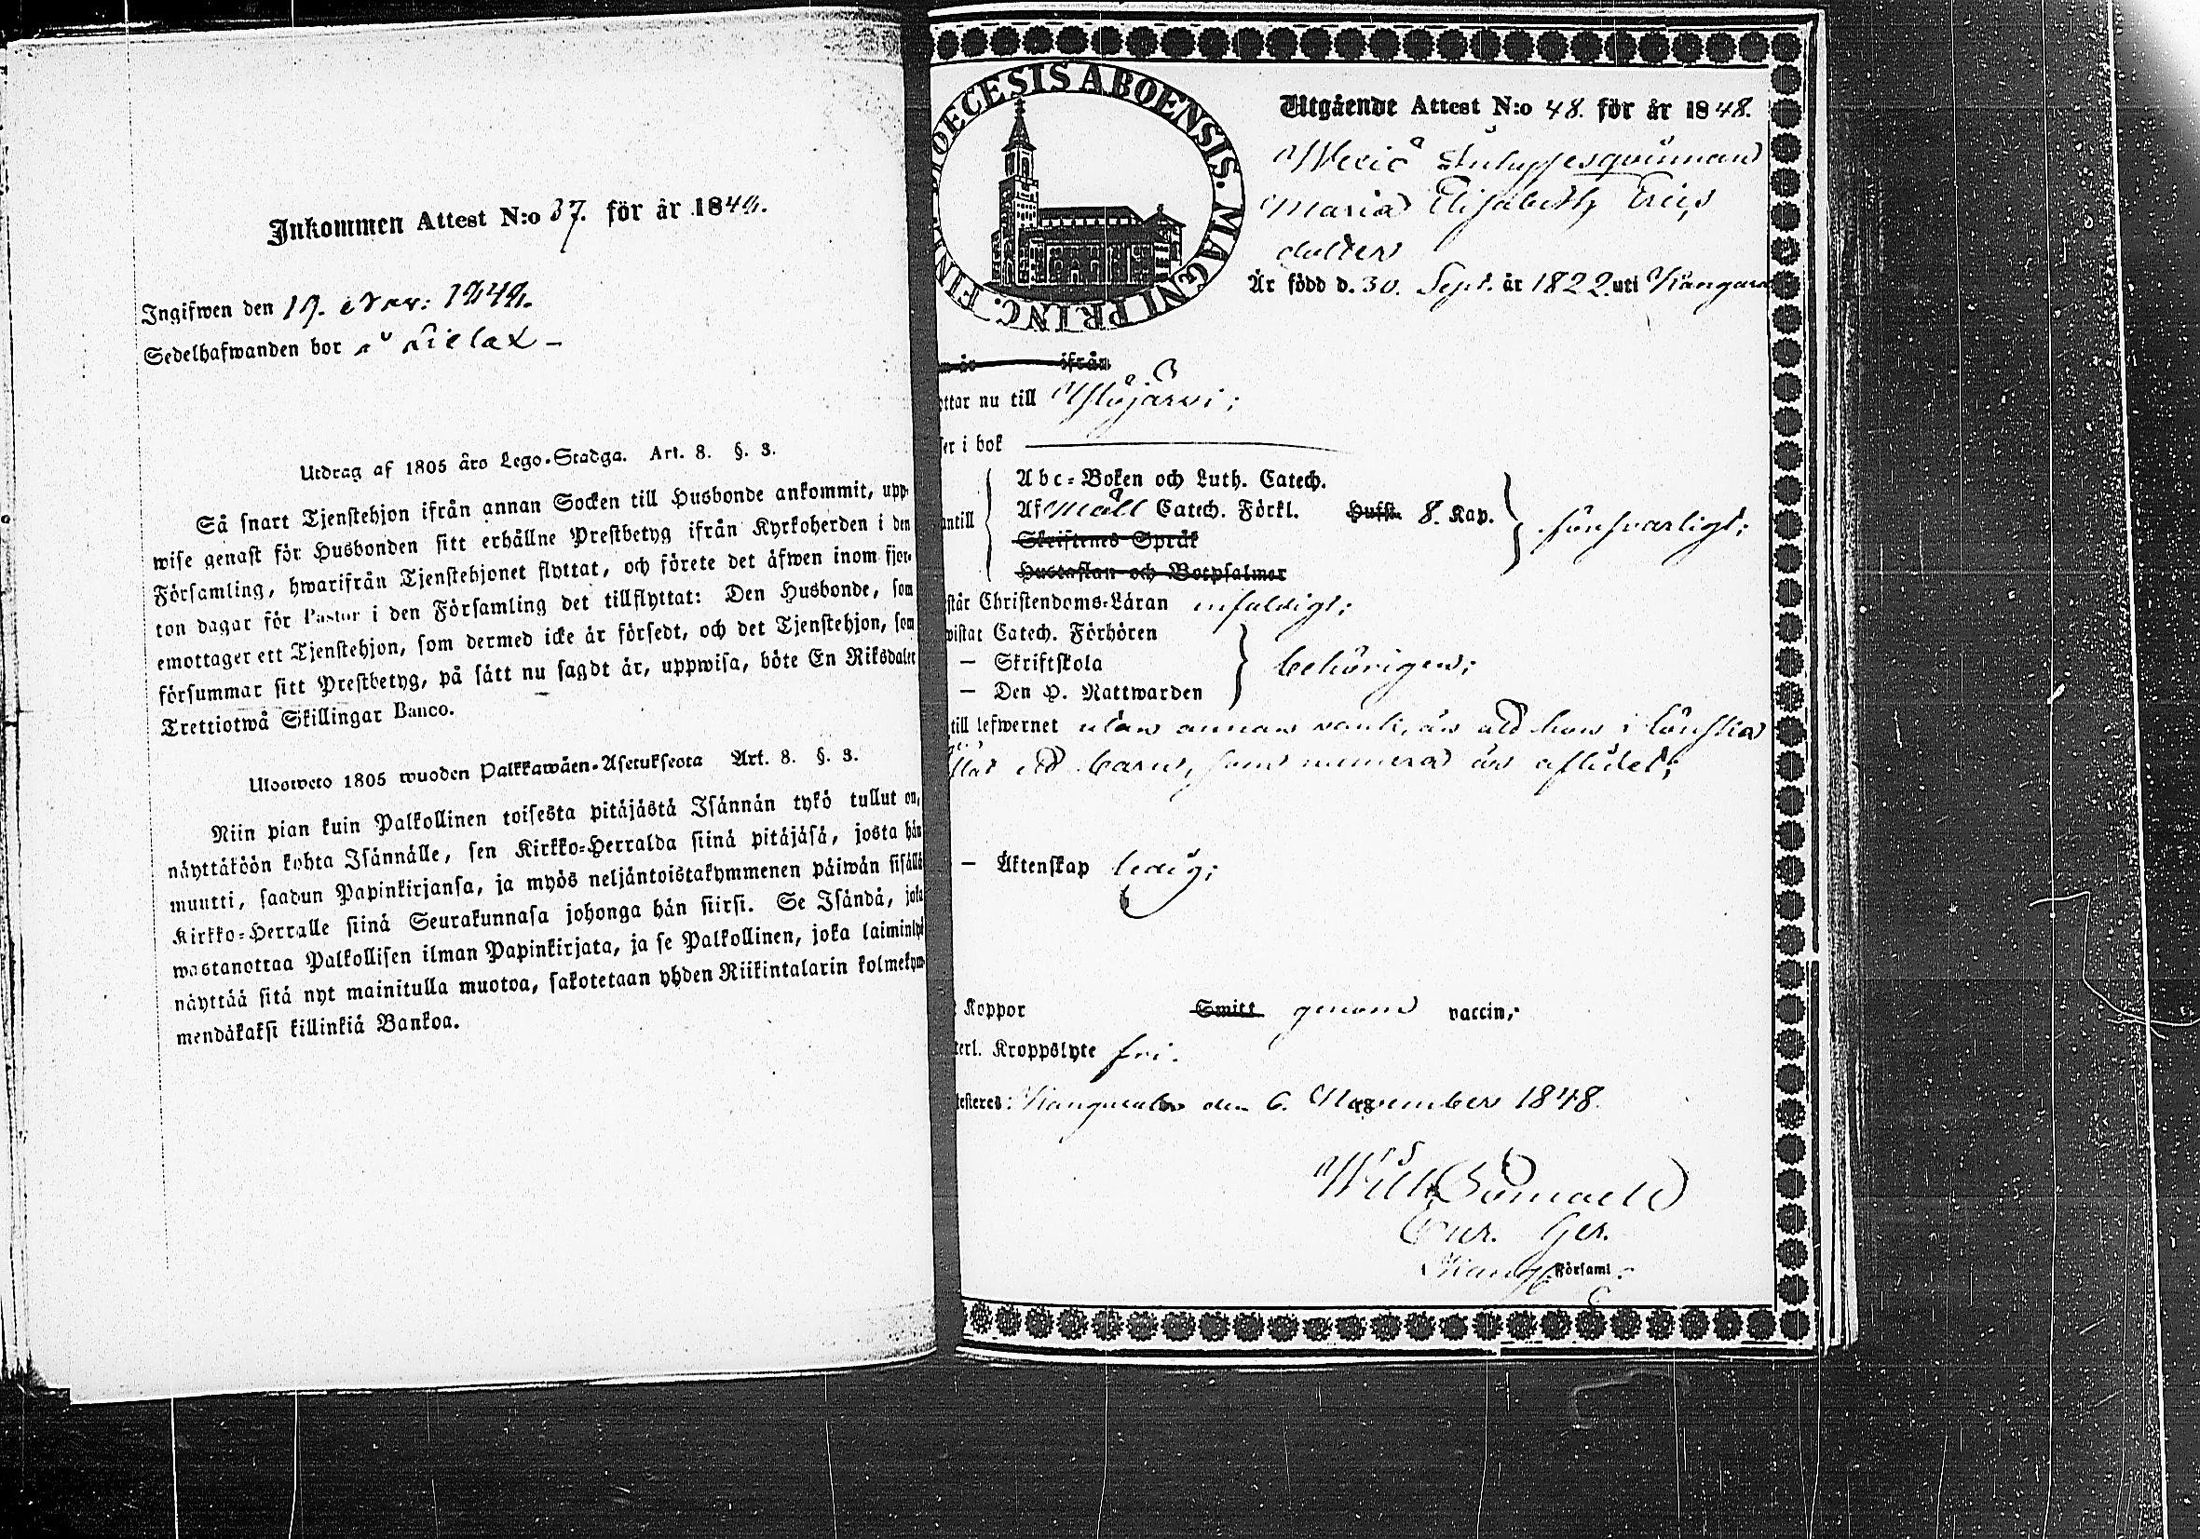 Inkommen Attest N:o 37. för år 1848.
Ingifwen den 19. Nov: 1848.
Sedelhafwanden bor i Lielax –
Utdrag af 1805 års Lego-Stadga. Art. 8. §. 3.
Så snart Tjenstehjon ifrån annan Socken till Husbonde ankommit, upp-
wise genast för Husbonden sitt erhållne Prestbetyg ifrån Kyrkoherden i den
Församling, hwarifrån Tjenstehjonet flyttat, och förete det äfwen inom fjor-
ton dagar för Pastor i den Församling det tillflyttat: Den Husbonde, som
emottager ett Tjenstehjon, som dermed icke är försedt, och det Tjenstehjon, som
försummar sitt Prestbetyg, på sätt nu sagdt är, uppwisa, böte En Riksdaler
Trettiotwå Skillingar Banco.
Ulosweto 1805 wuoden Palkkawäen-Asetuksesta Art. 8. §. 3.
Niin pian kuin Palkollinen toisesta pitäjästä Isännän tykö tullut on,
näyttäköön kohta Isännälle, sen Kirkko-Herralda siinä pitäjäsä, josta hän
muutti, saadun Papinkirjansa, ja myös neljäntoistakymmenen päiwän sisällä
Kirkko-Herralle siinä Seurakunnasa johonga hän siirsi. Se Isändä, joka
wastanottaa Palkollisen ilman Papinkirjata, ja se Palkollinen, joka laiminlyö
näyttää sitä nyt mainitulla muotoa, sakotetaan yhden Riikintalarin kolmekym-
mendäkaksi killinkiä Bankoa.
DIOECESIS ABOENSIS. MAGNI PRINC. FINL.
Utgående Attest N:o 48. för år 1848.
Inhysesqvinnan
Maria Elisabeth Erics
dotter
Är född d. 30. Sept. år 1822. uti Kangasa
m år ifrån
ttar nu till Ylöjärvi;
ser i bok
Abc-Boken och Luth. Catech.
antill Af Möll Catech. Förkl. Hufst. 8. Kap. försvarligt;
Skriftenes Språk
Hustaflan och Botpsalmer
står Christendoms-Läran enfaldigt;
wistat Catech. Förhören
– Skriftskola behörigen;
– Den H. Nattwarden
till lefwernet utan annan vank, än att hon i lönska
ett barn, som numera är aflidet;
– Äktenskap ledig;
Koppor Smitt genom vaccin;
terl. Kroppslyte fri.
testeres: Kangasala den 6. November 1848.
Cur. Ger.
Kang. Församl.